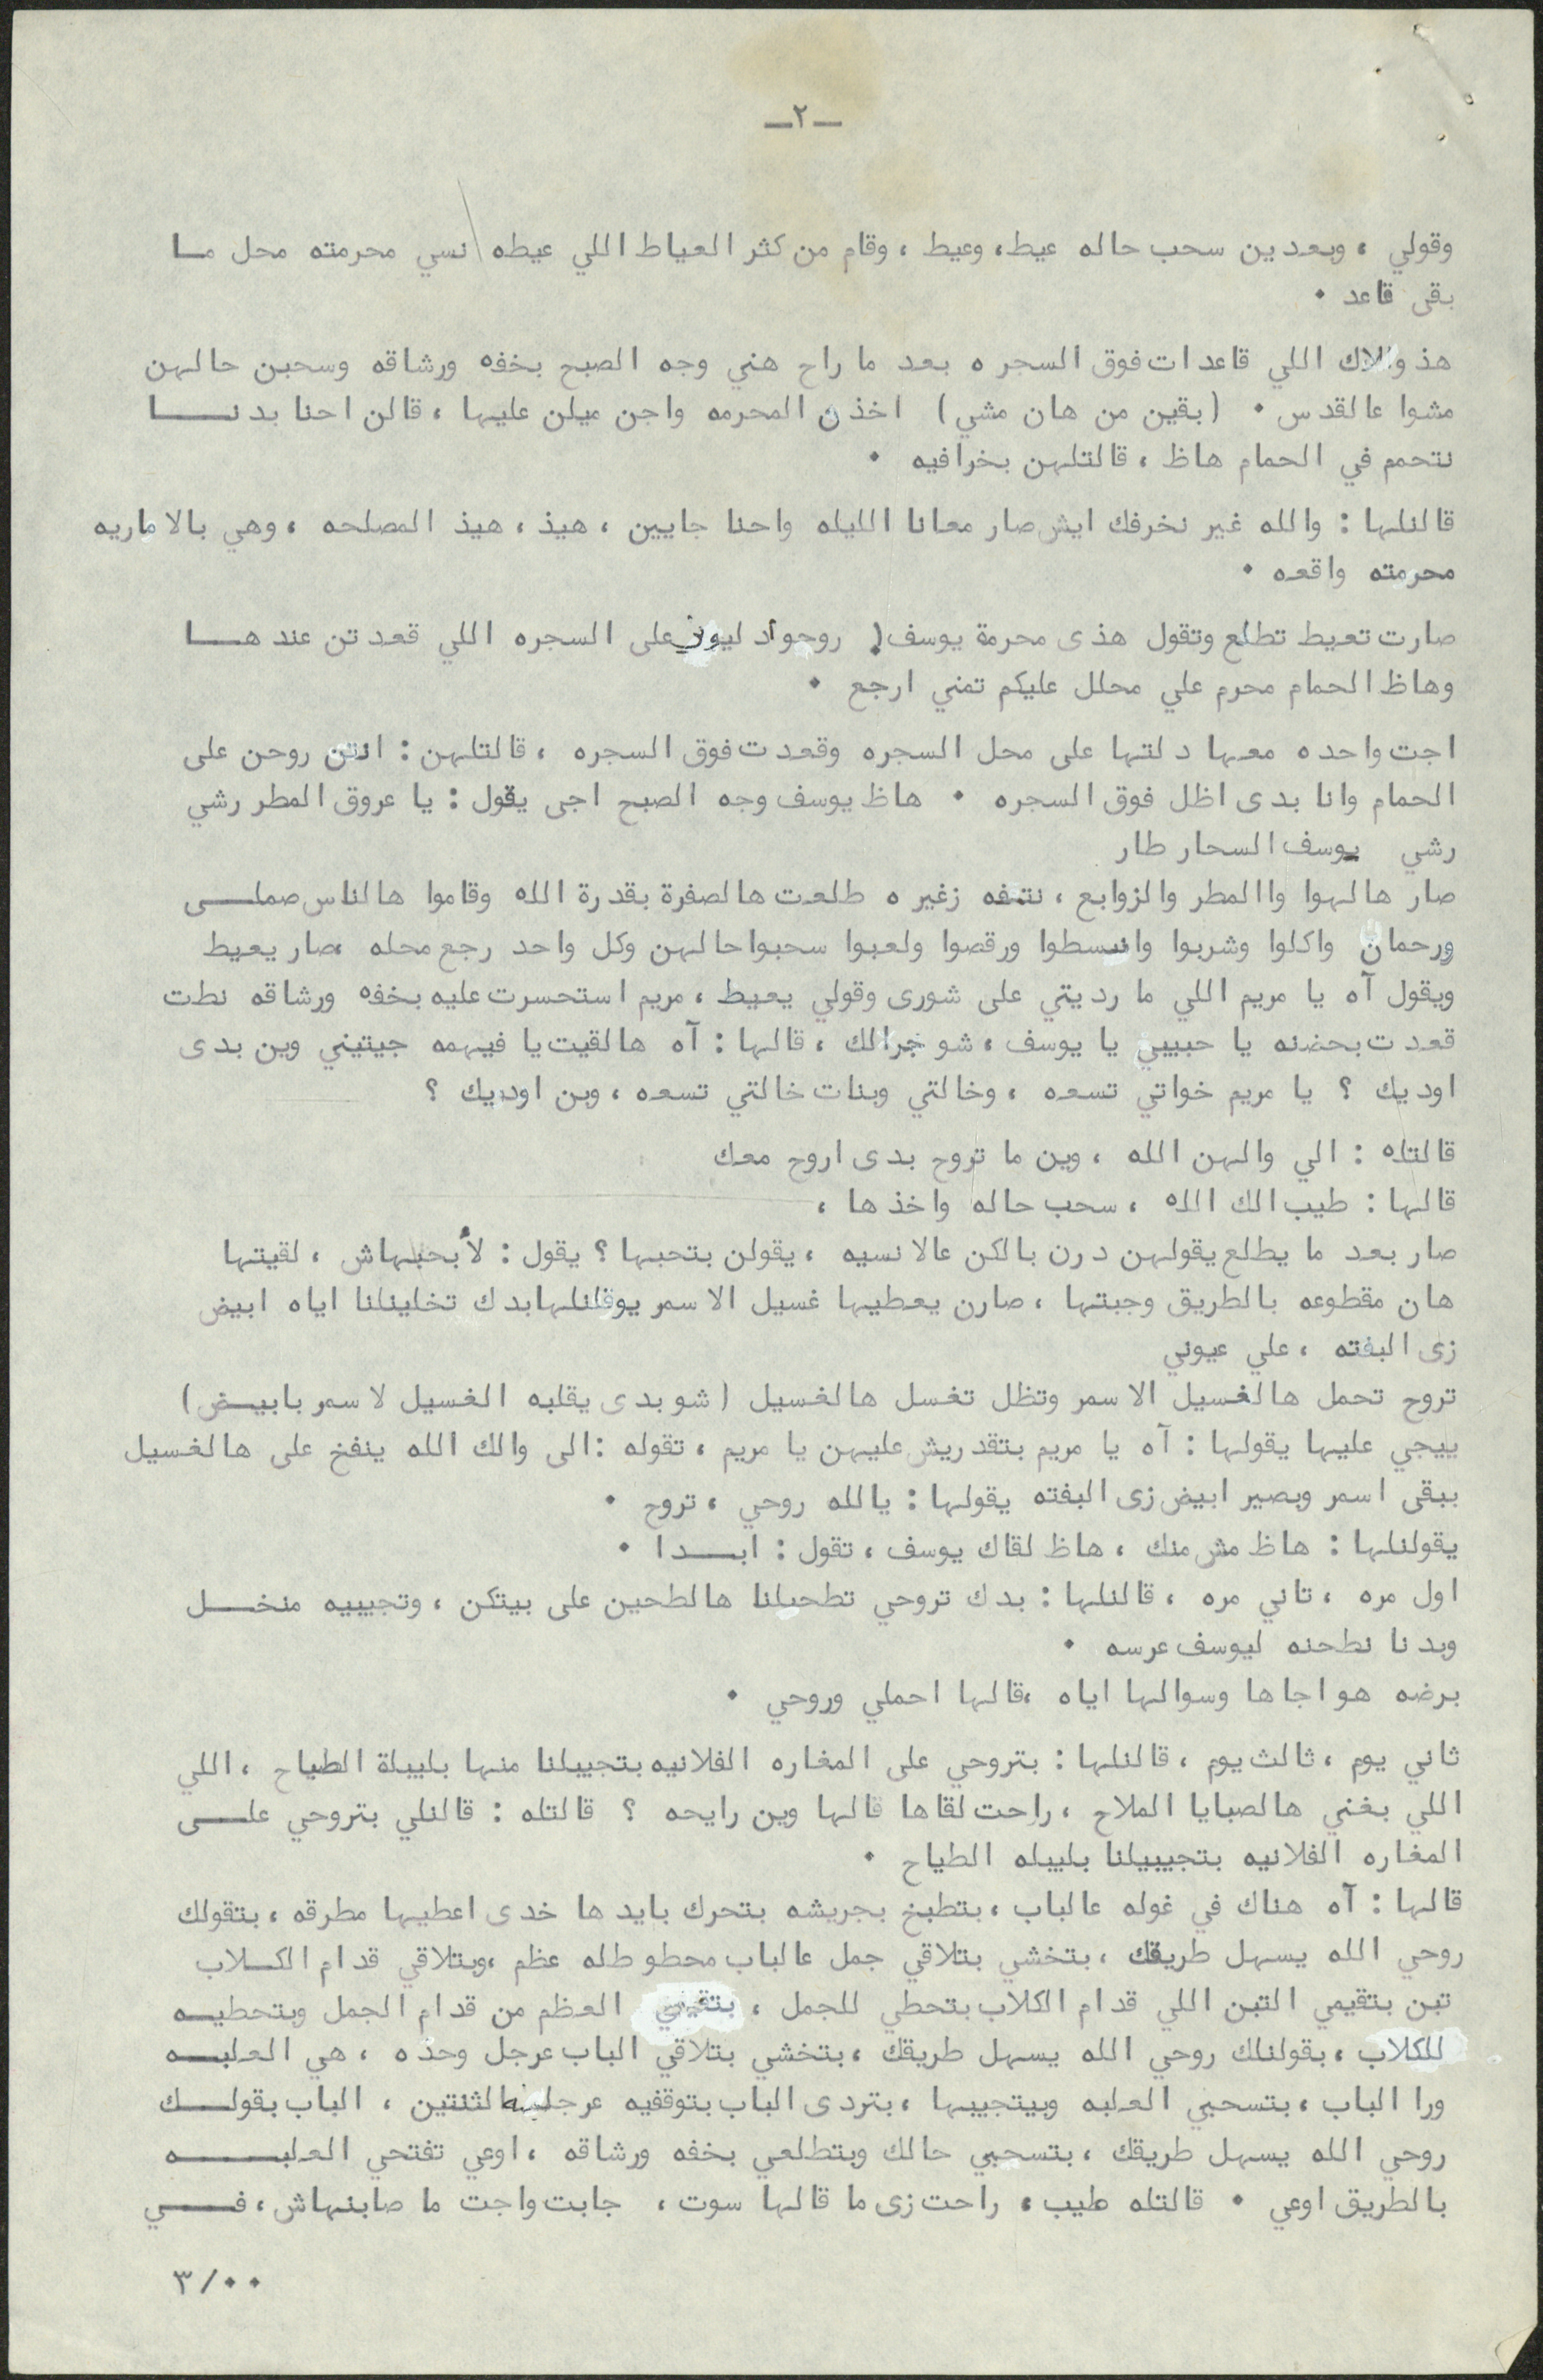 ـ٢ـ
وقولي ، وبعدين سحب حاله عيط، وعيط ، وقام من كثر العياط اللي عيطه نسي محرمته محل مـا
بقى قاعد ٠
هذ والاك اللي قاعدات فوق السجره بعد ما راح هني وجه الصبح بخفه ورشاقه وسحبن حالهن
مشوا عالقدس ٠ (بقين من هان مشي) اخذن المحرمه واجن ميلن عليها ، قالن احنا بدنــا
نتحمم في الحمام هاظ ، قالتلهن بخرافيه ٠
قالنلها : والله غير نخرفك ايش صار معانا الليله واحنا جايين ، هيذ ، هيذ المصلحه ، وهي بالاماريه
محرمته واقعه ٠
صارت تعيط تطلع وتقول هذى محرمة يوسف ! روحوا على السجره اللي قعدتن عندهــا
وهاظ الحمام محرم علي محلل عليكم تمني ارجع ٠
اجت واحده معها دلتها على محل السجره وقعدت فوق السجره ، قالتلهن : انتن روحن على
الحمام وانا بدى اظل فوق السجره ٠ هاظ يوسف وجه الصبح اجى يقول : يا عروق المطر رشي
رشي يوسف السحار طار
صار هالهوا واالمطر والزوابع ، نتفه زغيره طلعت هالصفرة بقدرة الله وقاموا هالناس صملــى
ورحمان واكلوا وشربوا وانبسطوا ورقصوا ولعبوا سحبوا حالهن وكل واحد رجع محله ،صار يعيط
ويقول آه يا مريم اللي ما رديتي على شورى وقولي يعيط ، مريم استحسرت عليه بخفه ورشاقه نطت
قعدت بحضنه يا حبيبي يا يوسف ، شو جرالك ، قالها : آه هالقيت يا فيهمه جيتيني وين بدى
اوديك ؟ يا مريم خواتي تسعه ، وخالتي وبنات خالتي تسعه ، وين اوديك ؟
قالتله : الي والهن الله ، وين ما تروح بدى اروح معك
قالها : طيب الك الله ، سحب حاله واخذها ،
صار بعد ما يطلع يقولهن درن بالكن عالانسيه ، يقولن بتحبها ؟ يقول : لأ بحبهاش ، لقيتها
هان مقطوعه بالطريق وجبتها ، صارن يعطيها غسيل الاسمر يوقلنلها بدك تخلينلنا اياه ابيض
زى البفته ، علي عيوني
تروح تحمل هالغسيل الاسمر وتظل تغسل هالغسيل (شو بدى يقلبه الغسيل لاسمر بابيـض)
ييجي عليها يقولها : آه يا مريم بتقدريش عليهن يا مريم ، تقوله :الى والك الله ينفخ على هالغسيل
ببقى اسمر وبصير ابيض زى البفته يقولها : يالله روحي ، تروح ٠
يقولنلها : هاظ مش منك ، هاظ لقاك يوسف ، تقول : ابــدا ٠
اول مره ، تاني مره ، قالنلها : بدك تروحي تطحنلنا هالطحين على بيتكن ، وتجيبيه منخــل
وبدنا نطحنه ليوسف عرسه ٠
برضه هو اجاها وسوالها اياه ،قالها احملي وروحي ٠
ثاني يوم ، ثالث يوم ، قالنلها : بتروحي على المغاره الفلانيه بتجيبلنا منها بليبلة الطياح ، اللي
اللي بغني هالصبايا الملاح ، راحت لقاها قالها وين رايحه ؟ قالتله : قالنلي بتروحي علــى
المغاره الفلانيه بتجيبيلنا بليبله الطياح ٠
قالها : آه هناك في غوله عالباب ، بتطبخ بجريشه بتحرك بايدها خدى اعطيها مطرقه ، بتقولك
روحي الله يسهل طريقك ، بتخشي بتلاقي جمل عالباب محطوطله عظم ،وبتلاقي قدام الكـلاب
تبن بتقيمي التبن اللي قدام الكلاب بتحطي للجمل ، بتقيمي العظم من قدام الجمل وبتحطيـه
للكلاب ، بقولنلك روحي الله يسهل طريقك ، بتخشي بتلاقي الباب عرجل وحذه ، هي العلبــه
ورا الباب ، بتسحبي العلبه وبيتجيبها ، بتردى الباب بتوقفيه عرجليه الثنتين ، الباب بقولــك
روحي الله يسهل طريقك ، بتسحبي حالك وبتطلعي بخفه ورشاقه ، اوعي تفتحي العلبــــه
بالطريق اوعي ٠ قالتله طيب ، راحت زى ما قالها سوت ، جابت واجت ما صابنهاش ، فـــي
٣/٠٠